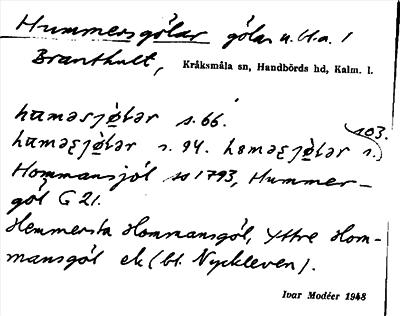 Hummersgölar gölar u. H.a. 1
Branthult, Kråksmåla sn, Handbörds hd, Kalm. l.
hʊməsɟø̀lər s. 66.
hʊməʂɟø̀lər s. 94. hɵməʂɟø̀lər s. 103.
Hommansjöl so 1793, Hummer-
göl G 21.
Hemmersta Hommansgöl, Yttre Hom-
mansgöl ek (bl. Nyckleven).
Ivar Modéer 1948